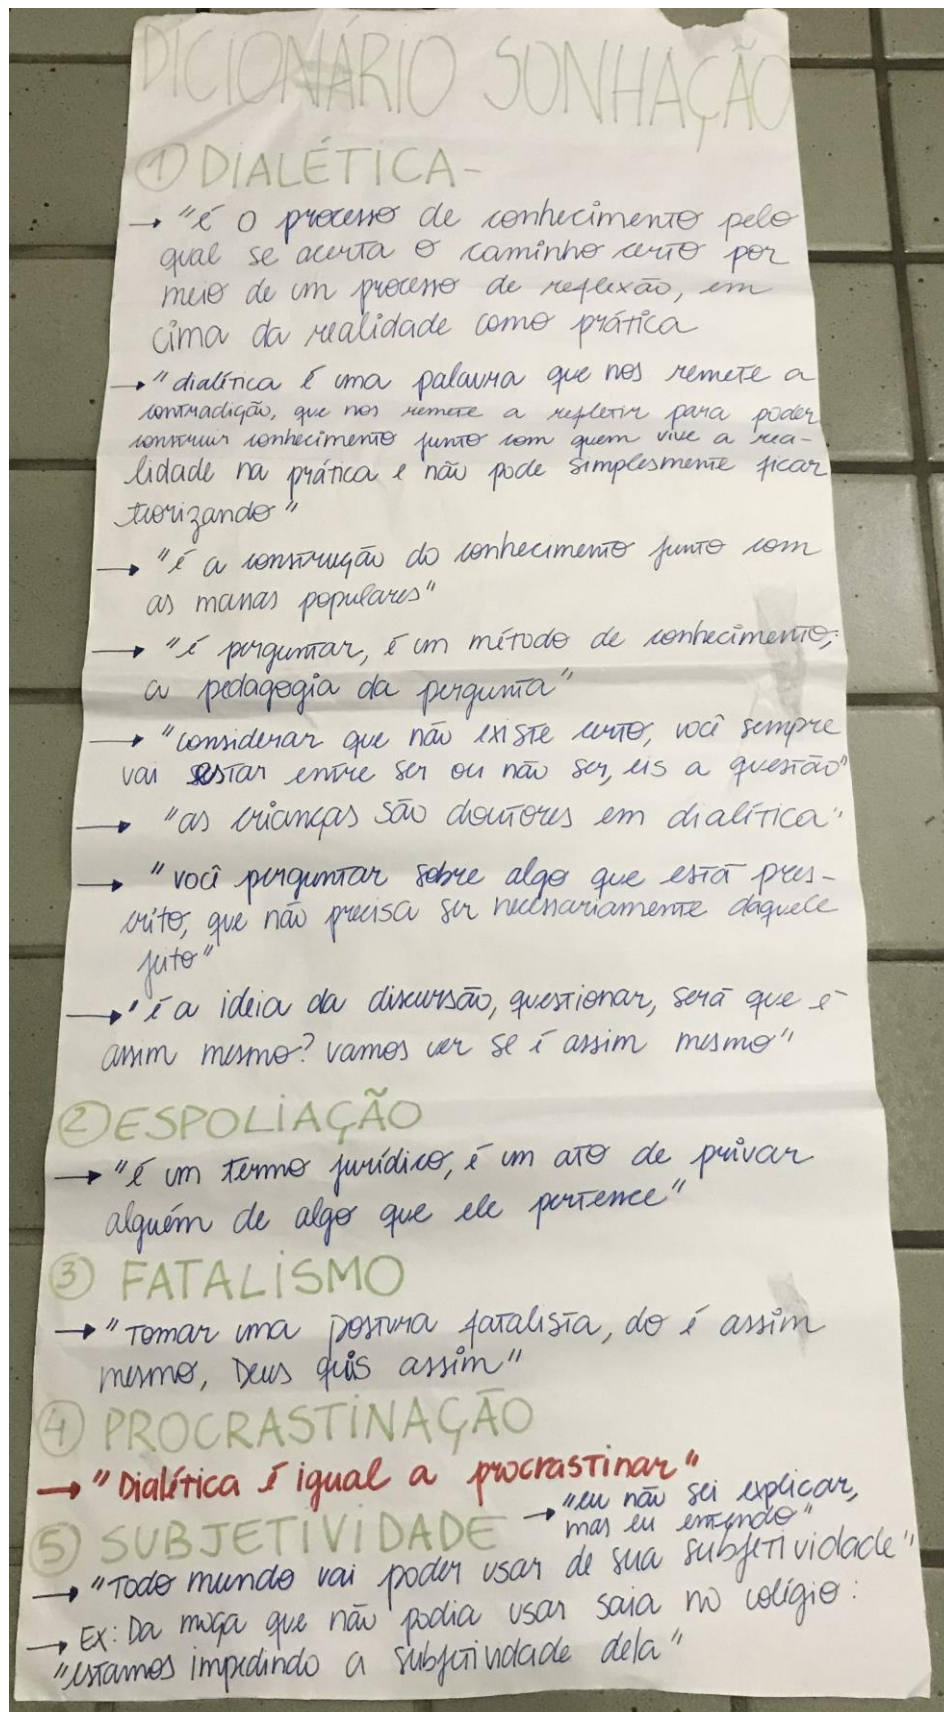 DICIONÁRIO SONHAÇÃO
① DIALÉTICA-
→ "é o processo de conhecimento pelo
qual se acerta o caminho certo por
meio de um processo de reflexão, em
cima da realidade como prática
→ "dialética é uma palavra que nos remete a
contradição, que nos remete a refletir para poder
construir conhecimento junto com quem vive a rea-
lidade na prática e não pode simplesmente ficar
teorizando"
→ "é a construção do conhecimento junto com
as massas populares"
→ "é perguntar, é um método de conhecimento;
a pedagogia da pergunta"
→ "considerar que não existe certo, você sempre
vai estar entre ser ou não ser, eis a questão"
→ "as crianças são doutores em dialética"
→ "você perguntar sobre algo que está pres-
crito, que não precisa ser necessariamente daquele
jeito"
→ "é a ideia da discursão, questionar, será que é
assim mesmo? vamos ver se é assim mesmo"
② ESPOLIAÇÃO
→ "é um termo jurídico, é um ato de privar
alguém de algo que ele pertence"
③ FATALISMO
→ "Tomar uma postura fatalista, do é assim
mesmo, Deus quis assim"
④ PROCRASTINAÇÃO
→ "Dialética é igual a procrastinar"
⑤ SUBJETIVIDADE → "eu não sei explicar,
mas eu entendo"
→ "Todo mundo vai poder usar de sua subjetividade"
→ Ex: Da moça que não podia usar saia no colégio:
"estamos impedindo a subjetividade dela"